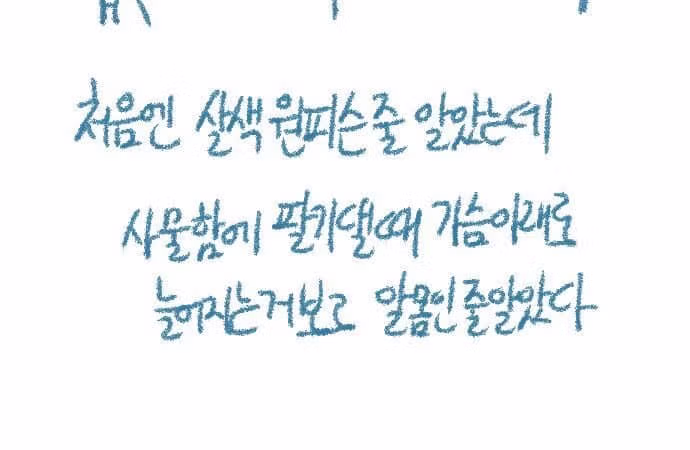 처음엔 살색 원피슨줄 알았는데
사물함에 팔키댈때 가슴아래로
늘어지는거보고 알몸인줄알았다